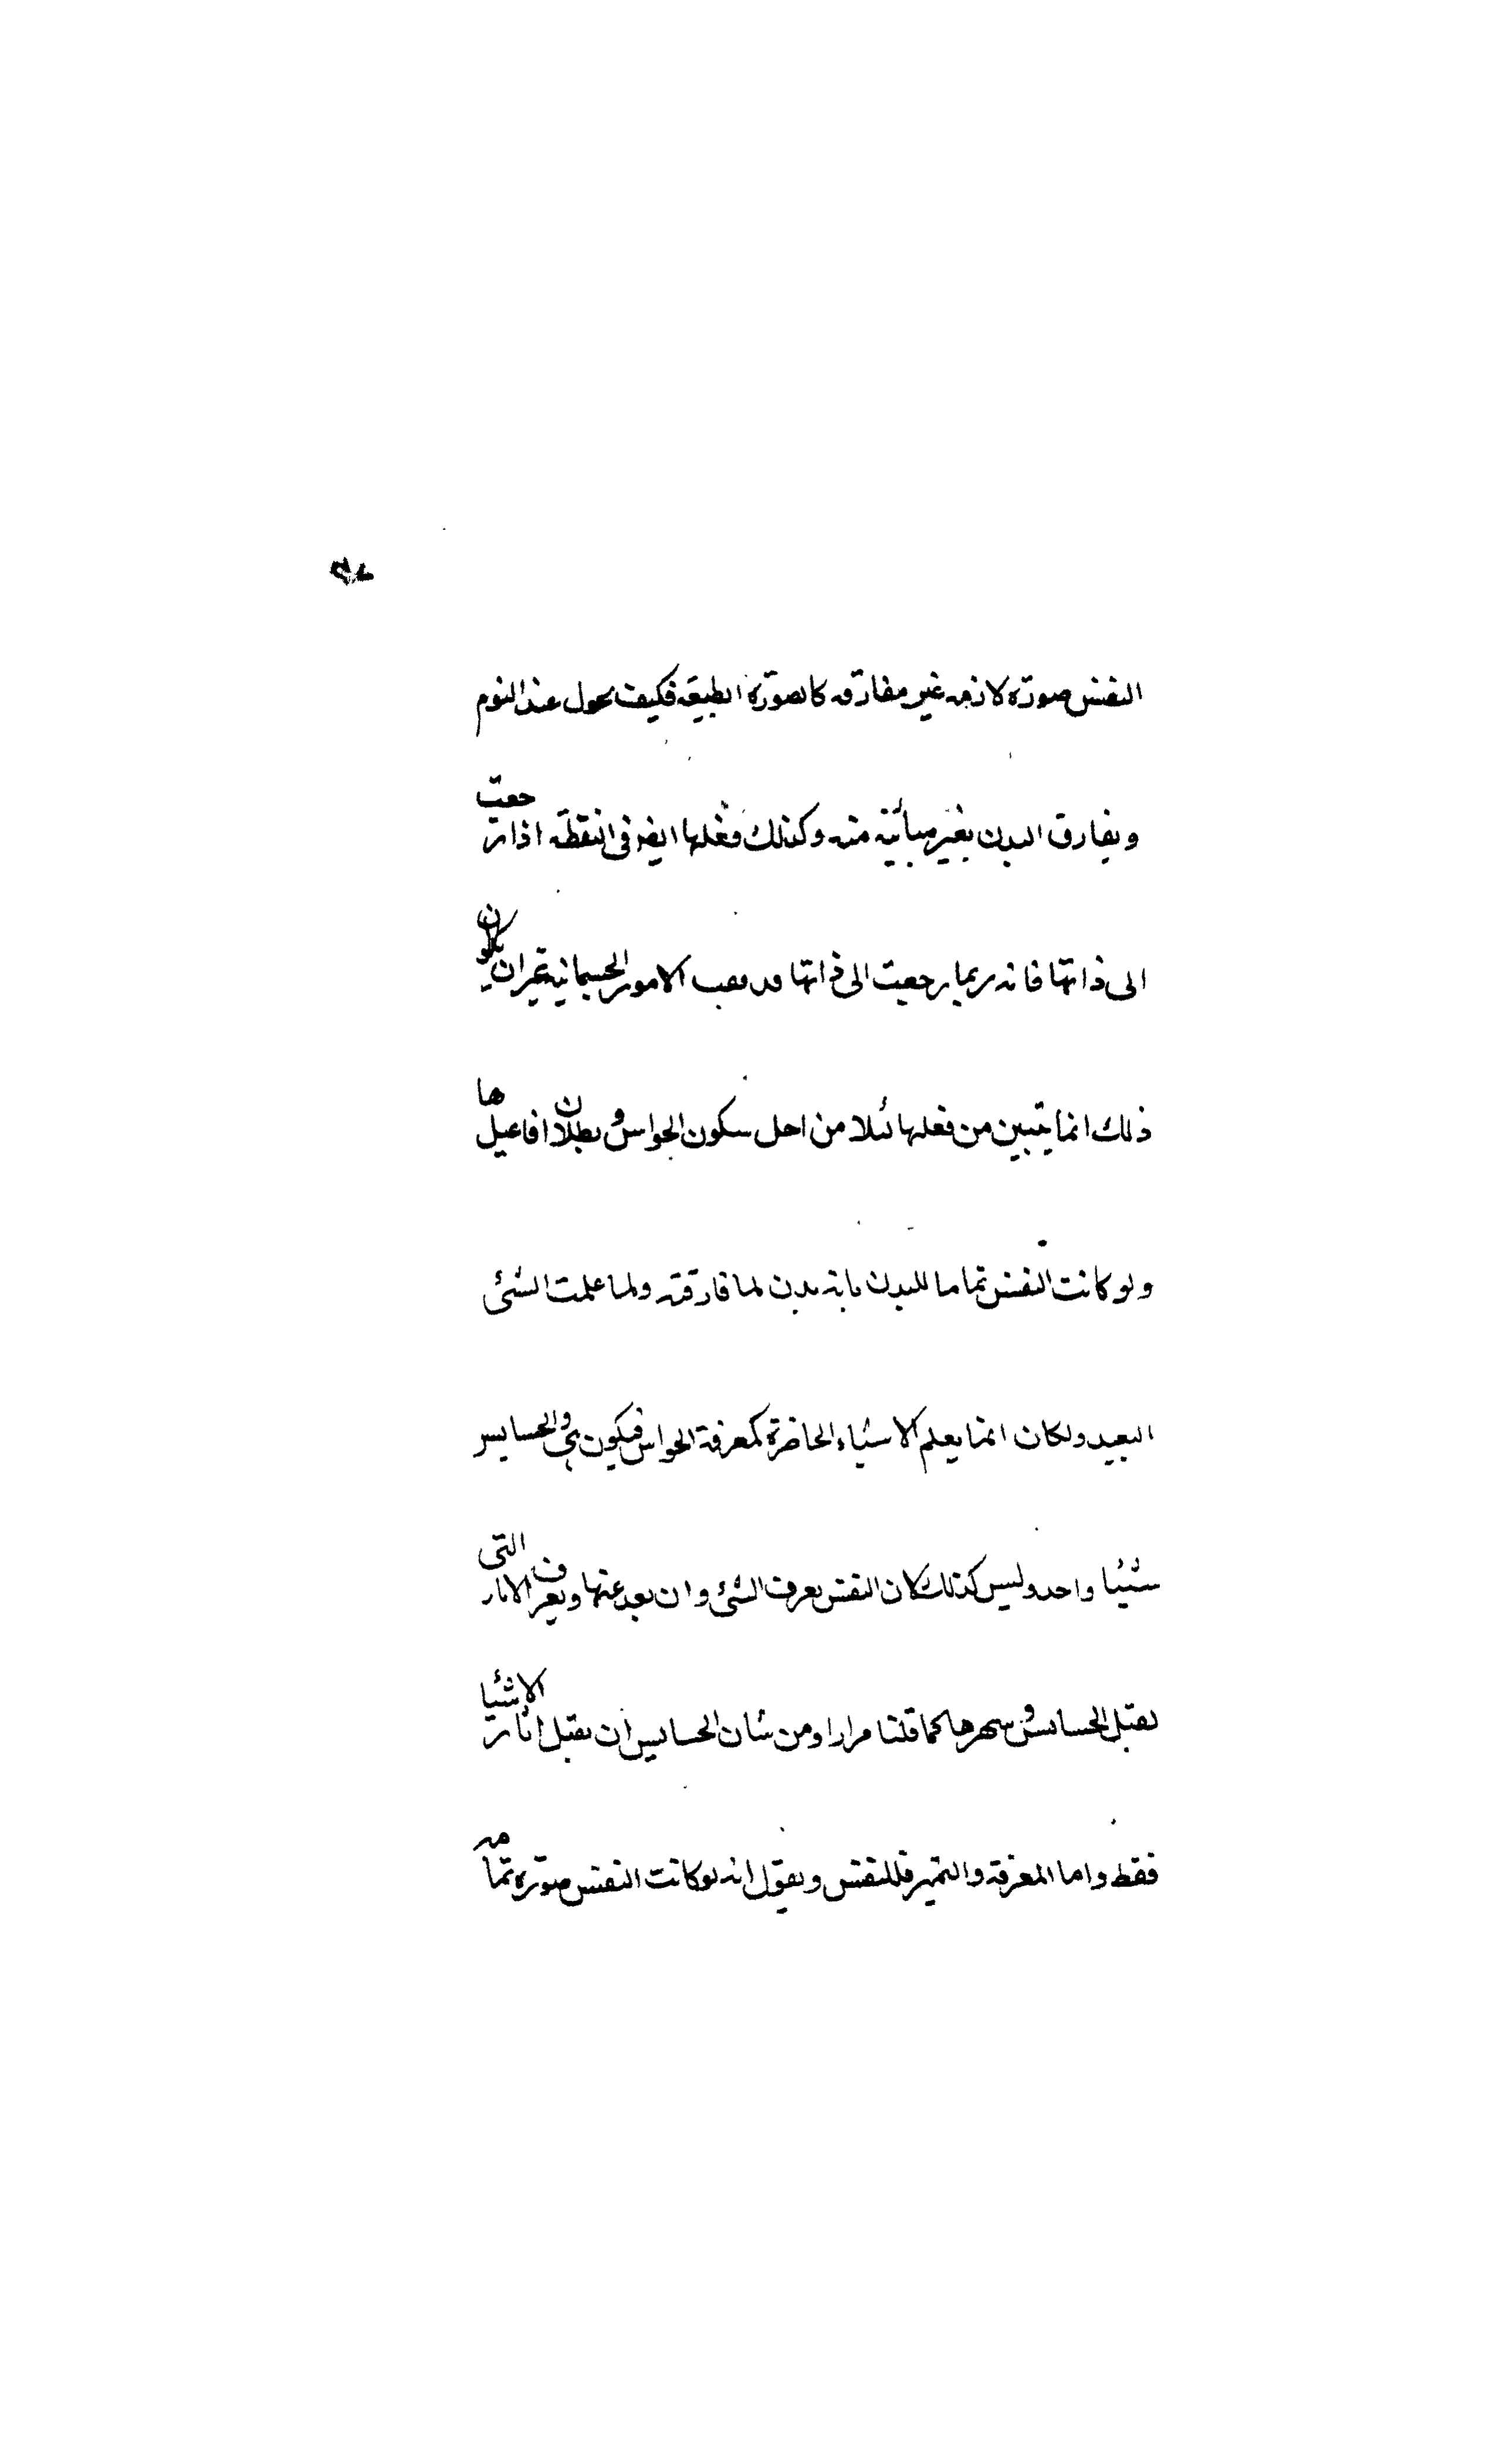 النفس صورة لازمه غير مفارقه كالصورة الطبيعه فكيف تحول عند النوم
ويفارق البدن بغير مبائنه منه وكذلك فعلها ايضا فى اليقظه اذا رجعت
الى ذاتها فانه ربما رجعت الى ذاتها الامور الجسمانيه غير ان يكون
ذلك انما يتبين من فعلها ليلا من اجل سكون الحواس وبطلان افاعيلها
ولو كانت النفس تماما للبدن بانه بدن لما فارقته ولما علمت الشئ
البعيد ولكان انما يعلم الاشياء الحاضرة كمعرفة الحواس فيكون هى والحسايس
شيئا واحد وليس كذلك لان النفس يعرف الشئ وان بعد عنها ويعرف الاثار التى
يقبل الحسايس كما قلنا مرارا ومن شان الحسايس ان يقبل اثار الاشيا
فقط واما المعرفة والتميز فللنفس ونقول انه لو كانت النفس صورة تماميه